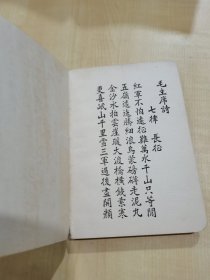 毛主席詩
七律 長征
紅軍不怕遠征難萬水千山只等閒
五嶺逶迤騰細浪烏蒙磅礴走泥丸
金沙水拍雲崖暖大渡橋橫鐵索寒
更喜岷山千里雪三軍過後盡開顏